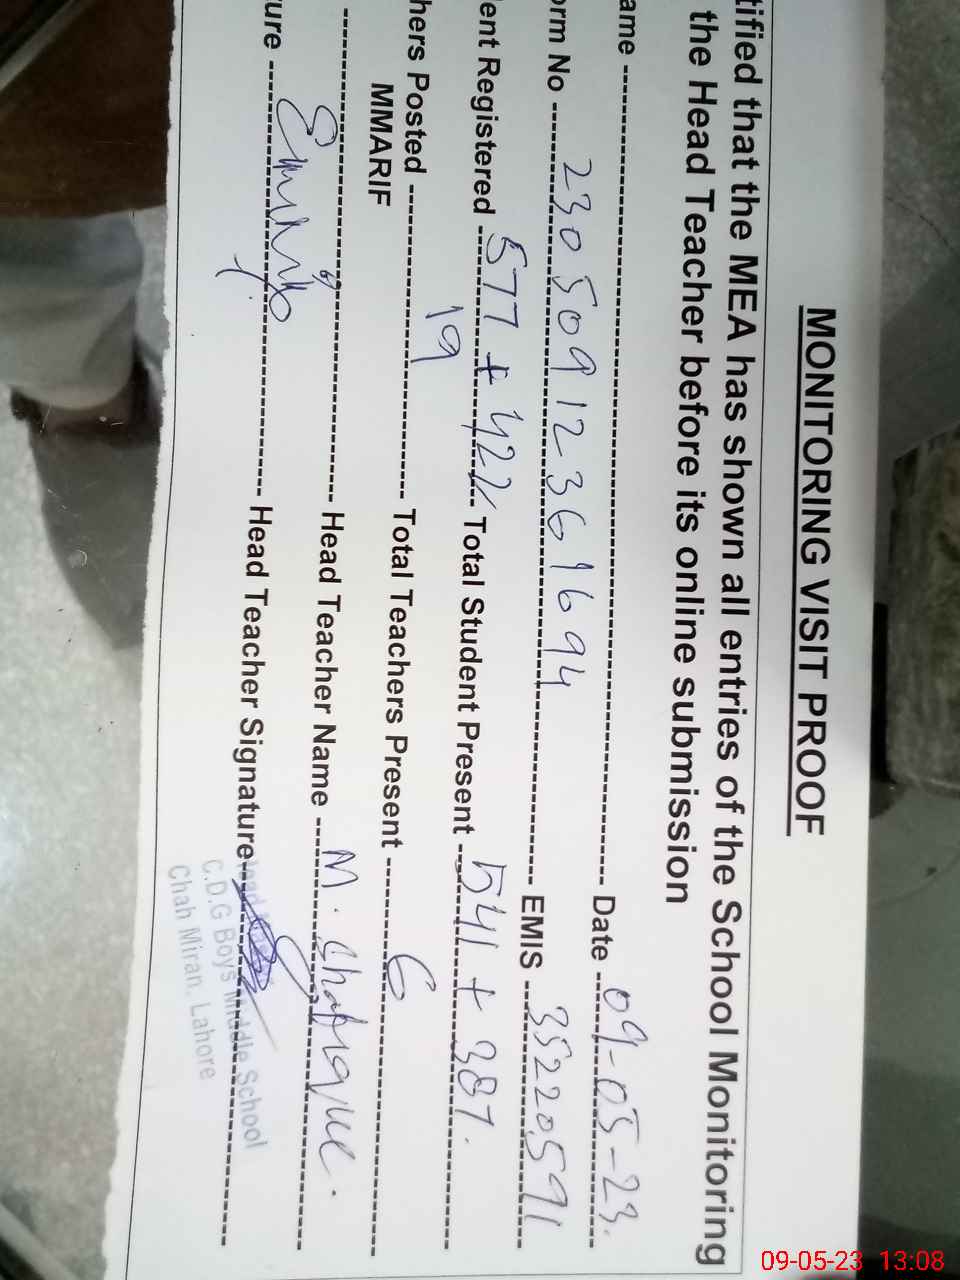 MONITORING VISIT PROOF
tified that the MEA has shown all entries of the School Monitoring
the Head Teacher before its online submission
ame Date 09-05-23.
orm No 23050912361694 EMIS 35220591
ent Registered 577 + 422 Total Student Present 541 + 387.
hers Posted 19 Total Teachers Present 6
MMARIF
Head Teacher Name M. Shafique.
ure Head Teacher Signature
C.D.G Boys Middle School
Chah Miran. Lahore
09-05-23 13:08